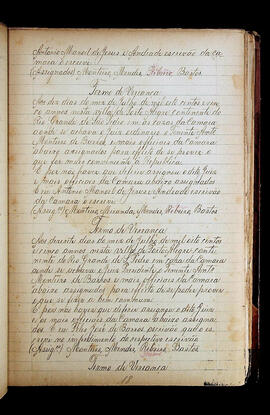 Antonio Manoel de Jesus e Andrade escrivão da Ca-
mara o escrevi.
(Assignados) Monteiro, Mendes, Ribeiro, Bastos.
Termo de Vereança
Aos dez dias do mez de Julho de mil oito centos e vin-
annos nesta villa de Porto Alegre continente do
Rio Grande de São Pedro em as casas da Camara
aonde se achava o Juiz ordinario o Tenente
Monteiro de Barros e mais officiaes da Camara
abaixo assignados para effeito de se prover o
que for mais conveniente a Republica.
E por nao haver que deferir assignou o dito Juiz
e mais officiaes da Camara abaixo assignados
Eu Antonio Manoel de Jesus Andrade escrivão
da Camara o escrevi.
Monteiro, Miranda, Mendes, Ribeiro, Bastos
Termo de Vereança
Aos dias do mez de Julho de mil oito centos
e annos nesta villa de Porto Alegre, conti-
nente do Rio Grande de S. Pedro em casa da Camara
aonde se achava o Juiz Presidente o Tenente
Monteiro de Barros e mais officiaes da Camara
abaixo assignados para effeito de se poder prover
o que se para o bem commum.
E por não haver que deferir assignou o dito Juiz
e os mais officiaes da Camara abaixo assigna-
dos. E eu José de Barros escrivão que o es-
crevi no impedimento do respectivo escrivão.
Monteiro, Mendes, Ribeiro, Bastos.
Termo de Vereança